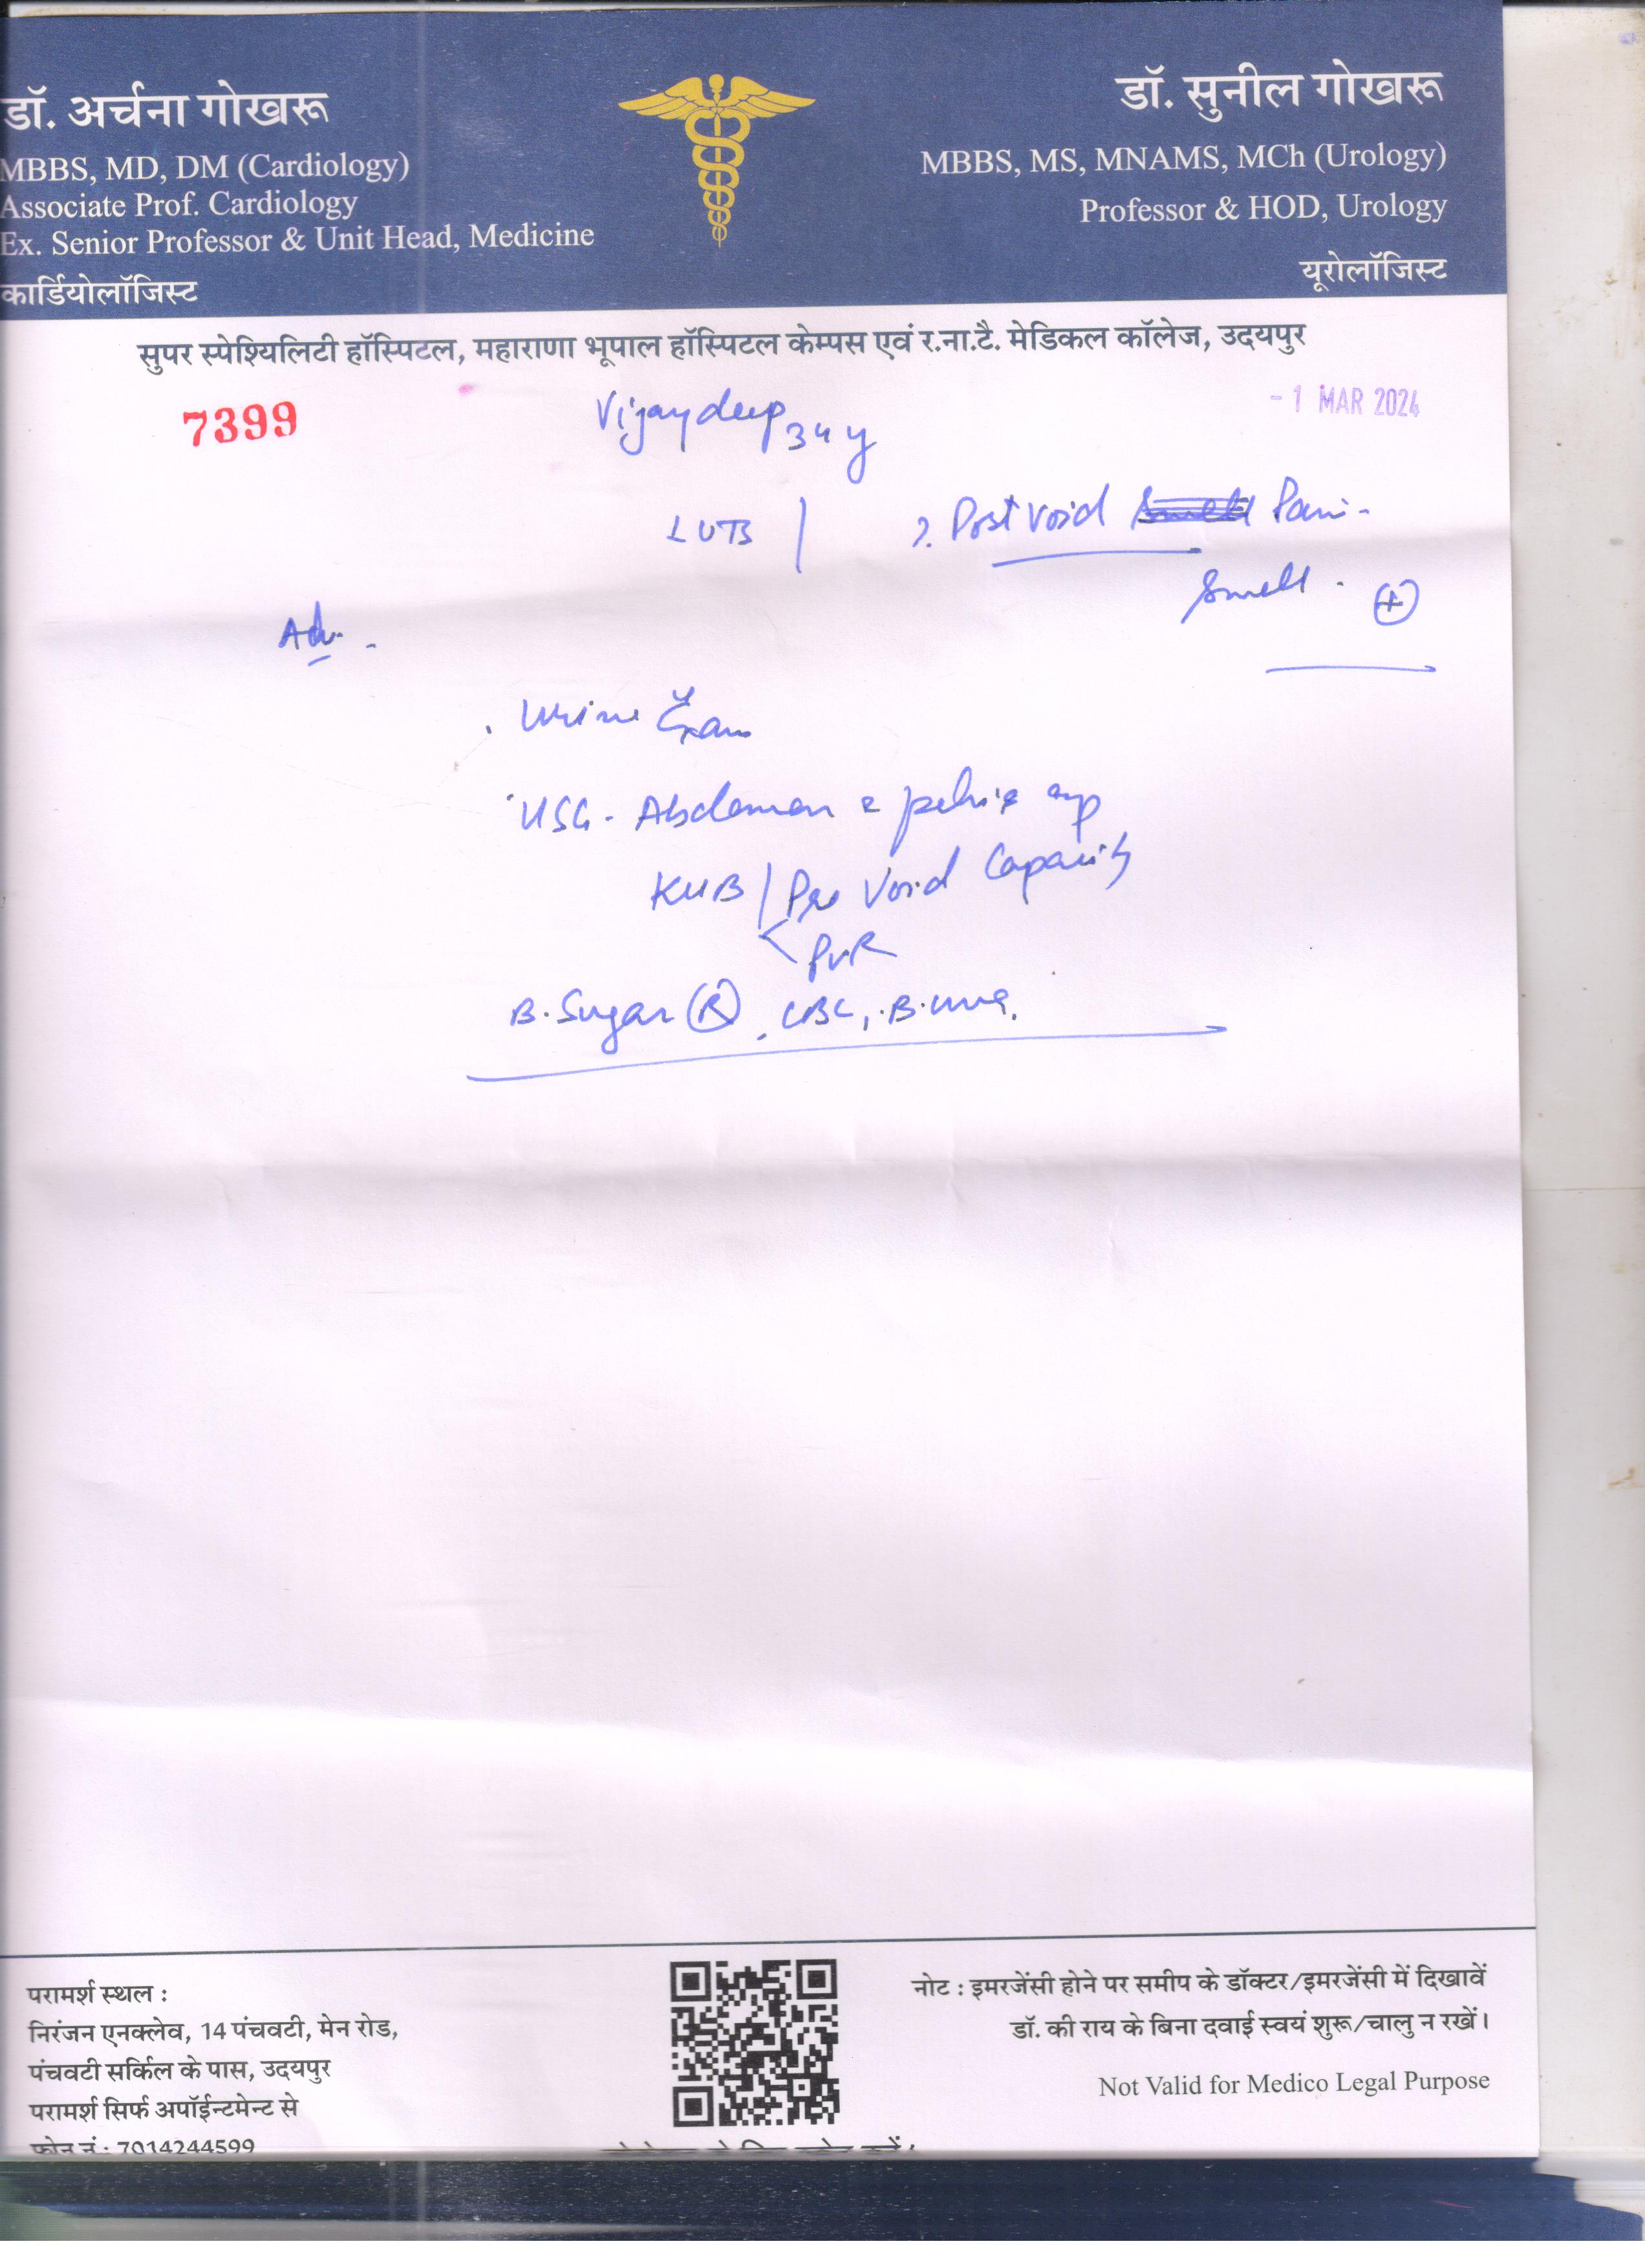 डॉ. अर्चना गोखरू
MBBS, MD, DM (Cardiology)
Associate Prof. Cardiology
Ex. Senior Professor & Unit Head, Medicine
कार्डियोलॉजिस्ट
डॉ. सुनील गोखरू
MBBS, MS, MNAMS, MCh (Urology)
Professor & HOD, Urology
यूरोलॉजिस्ट
सुपर स्पेश्यिलिटी हॉस्पिटल, महाराणा भूपाल हॉस्पिटल केम्पस एवं र.ना.टै. मेडिकल कॉलेज, उदयपुर
7399
- 1 MAR 2024
Vijaydeep 34 y
LUTS
Post void Pain -
Smell . +
Adv -
. Urine Exam
USG - Abdomen pelvis
KUB / Pre Void Capacity
< PVR
B. Sugar (R), CBC, B. urea.
परामर्श स्थल :
निरंजन एनक्लेव, 14 पंचवटी, मेन रोड,
पंचवटी सर्किल के पास, उदयपुर
परामर्श सिर्फ अपॉईन्टमेन्ट से
फोन नं : 7014244599
नोट : इमरजेंसी होने पर समीप के डॉक्टर/इमरजेंसी में दिखावें
डॉ. की राय के बिना दवाई स्वयं शुरू/चालु न रखें।
Not Valid for Medico Legal Purpose